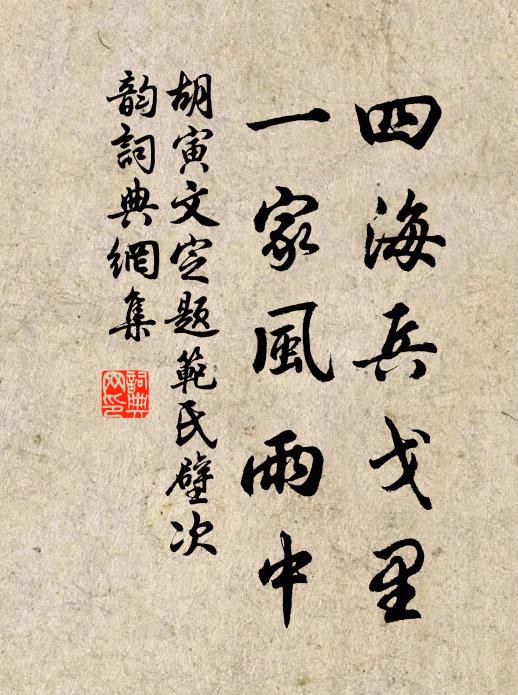 四海兵戈里
一家風雨中
胡寅文定题範氏壁次
韵詞典網集
詞典
网印